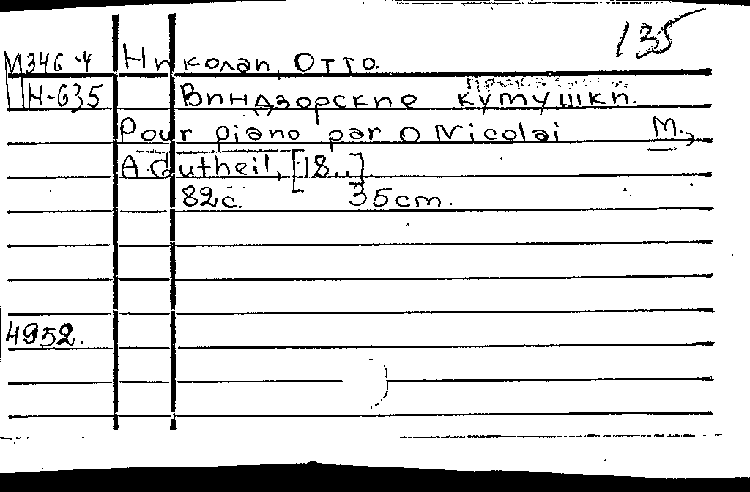 135
М346-4 Николаи, Отто.
Н-635 Виндзорские кумушки.
Pour piano par O Nicolai М.,
A. Dutheil, [18..]
82с. 35cm.
4952.